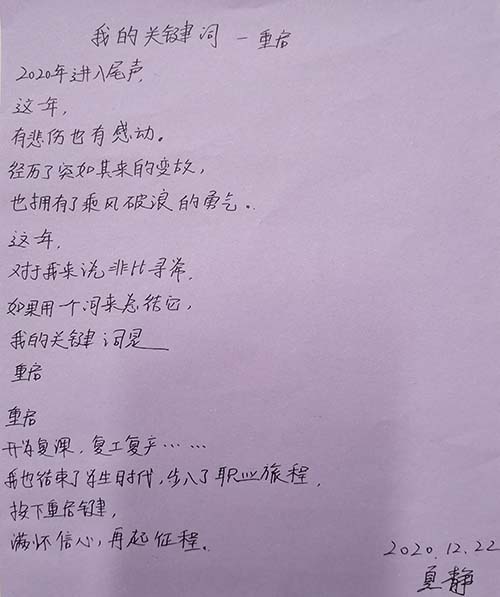 我的关键词 — 重启
2020年进入尾声,
这一年,
有悲伤也有感动。
经历了突如其来的变故,
也拥有了乘风破浪的勇气。
这一年,
对于我来说非比寻常,
如果用一个词来总结它,
我的关键词是__
重启
重启
开学复课，复工复产……
我也结束了学生时代，步入了职业旅程,
按下重启键,
满怀信心，再起征程。
2020.12.22
夏静